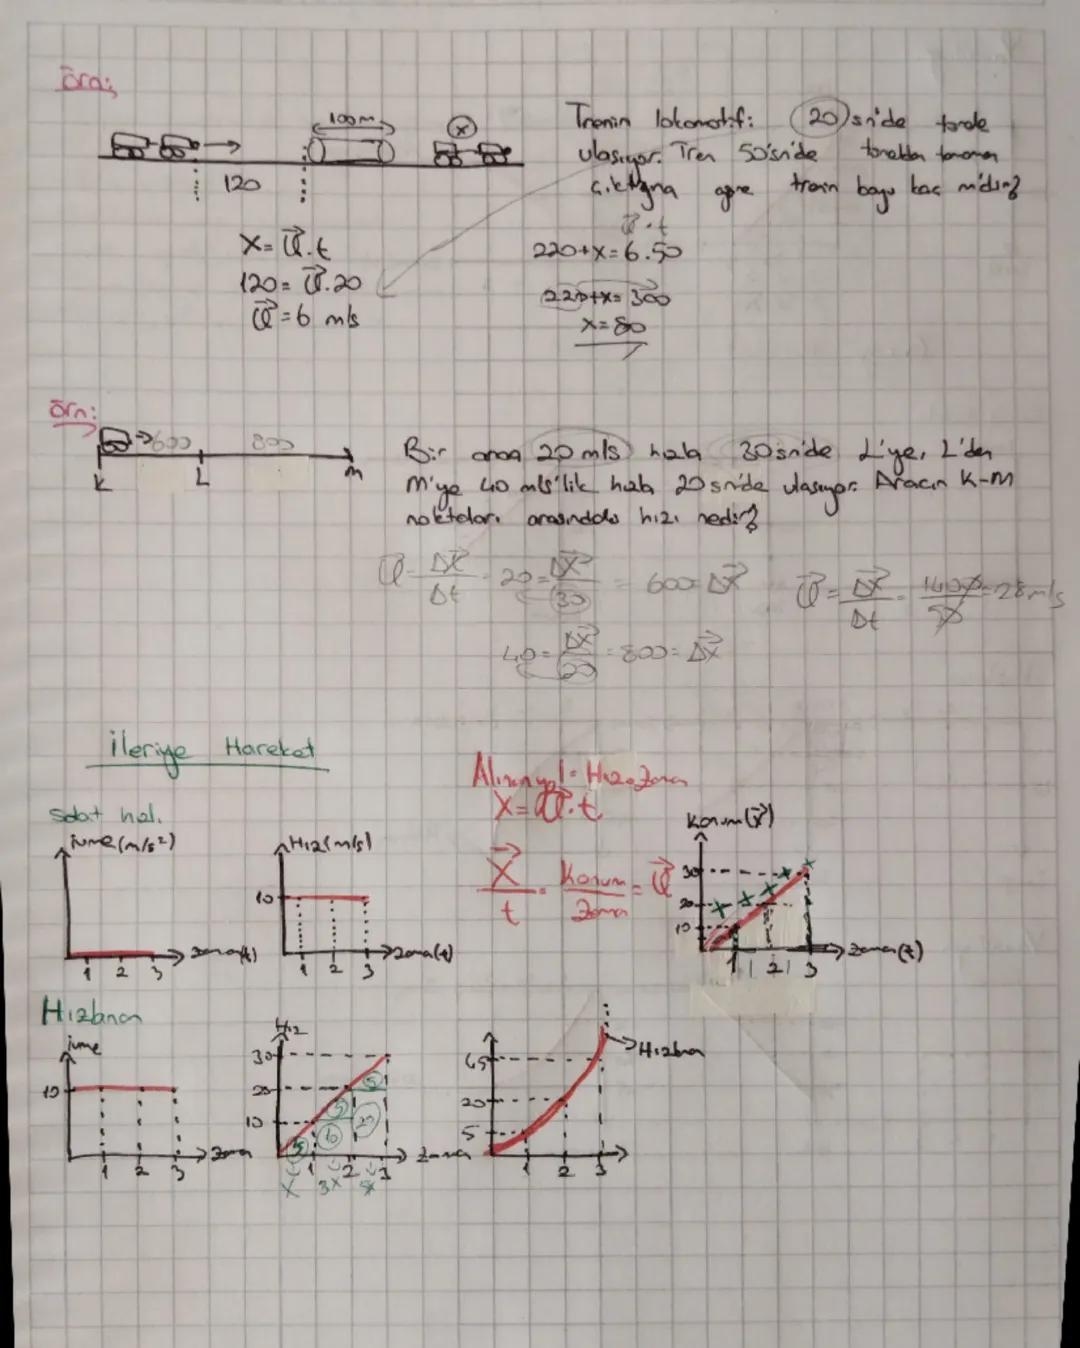 Örn;
100m
x
120
Trenin lokomotifi 20 sn'de tünele
ulaşıyor. Tren 50 sn'de tünelden tamamen
çıktığına göre trenin boyu kaç m'dir?
X = ϑ.t
120 = ϑ.20
ϑ = 6 m/s
ϑ.t
220+x=6.50
220+x=300
x=80
Örn:
600 800
K L M
Bir araç 20 m/s hızla 30 sn'de L'ye, L'den
M'ye 40 m/s'lik hızla 20 sn'de ulaşıyor. Aracın K-M
noktaları arasındaki hızı nedir?
ϑ = Δx/Δt = 20 = Δx/30 = 600 = Δx
40 = Δx/20 = 800 = Δx
ϑ = Δx/Δt = 1400/50 = 28 m/s
İleriye Hareket
Sabit hız.
ivme (m/s²)
1 2 3
zaman(t)
Hız (m/s)
10
1 2 3
zaman(t)
Alınan yol = Hız.Zaman
X = ϑ.t
X/t = Konum/Zaman = ϑ
Konum (x)
30
20
10
1 2 3
zaman(t)
Hızlanan
ivme
10
1 2 3
zaman
Hız
30
20
10
5 10 5 20 5
1 2 3
zaman
x 3x 5x
45
20
5
1 2 3
Hızlanan